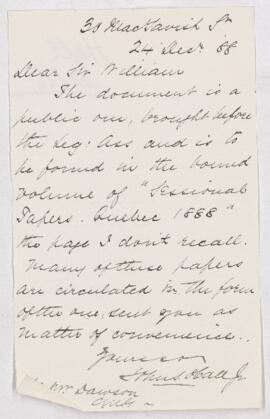 30 MacTavish St
24 Decr '88
Dear Sir William
The document is a
public one, brought before
the Leg: Ass and is to
be found in the bound
volume of "Sessional
Papers. Quebec 1888"
the page I don't recall.
Many of these papers
are circulated in the form
of the one, sent you as
matter of convenience..
Yours
John S Hall Jr
Wm Dawson